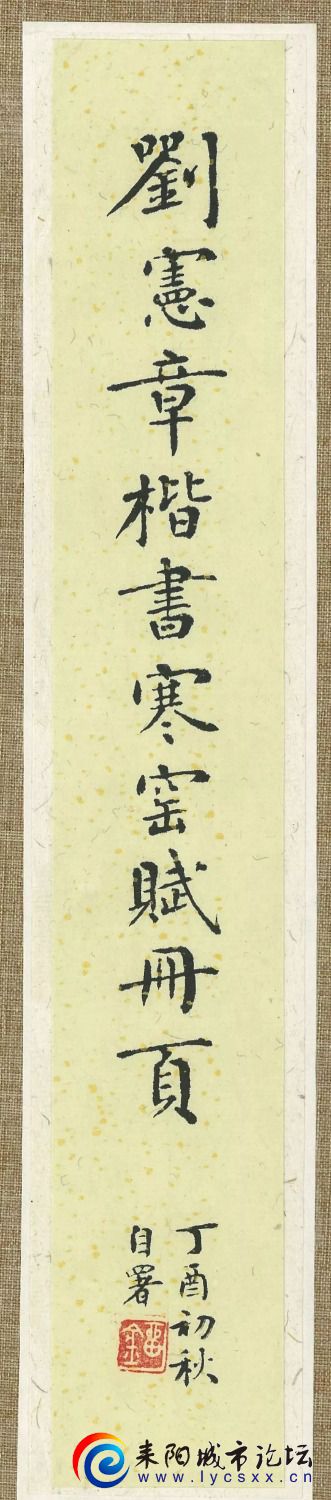 劉憲章楷書寒窑賦冊頁
丁酉初秋
自署
耒阳城市论坛
www.lycsxx.cn